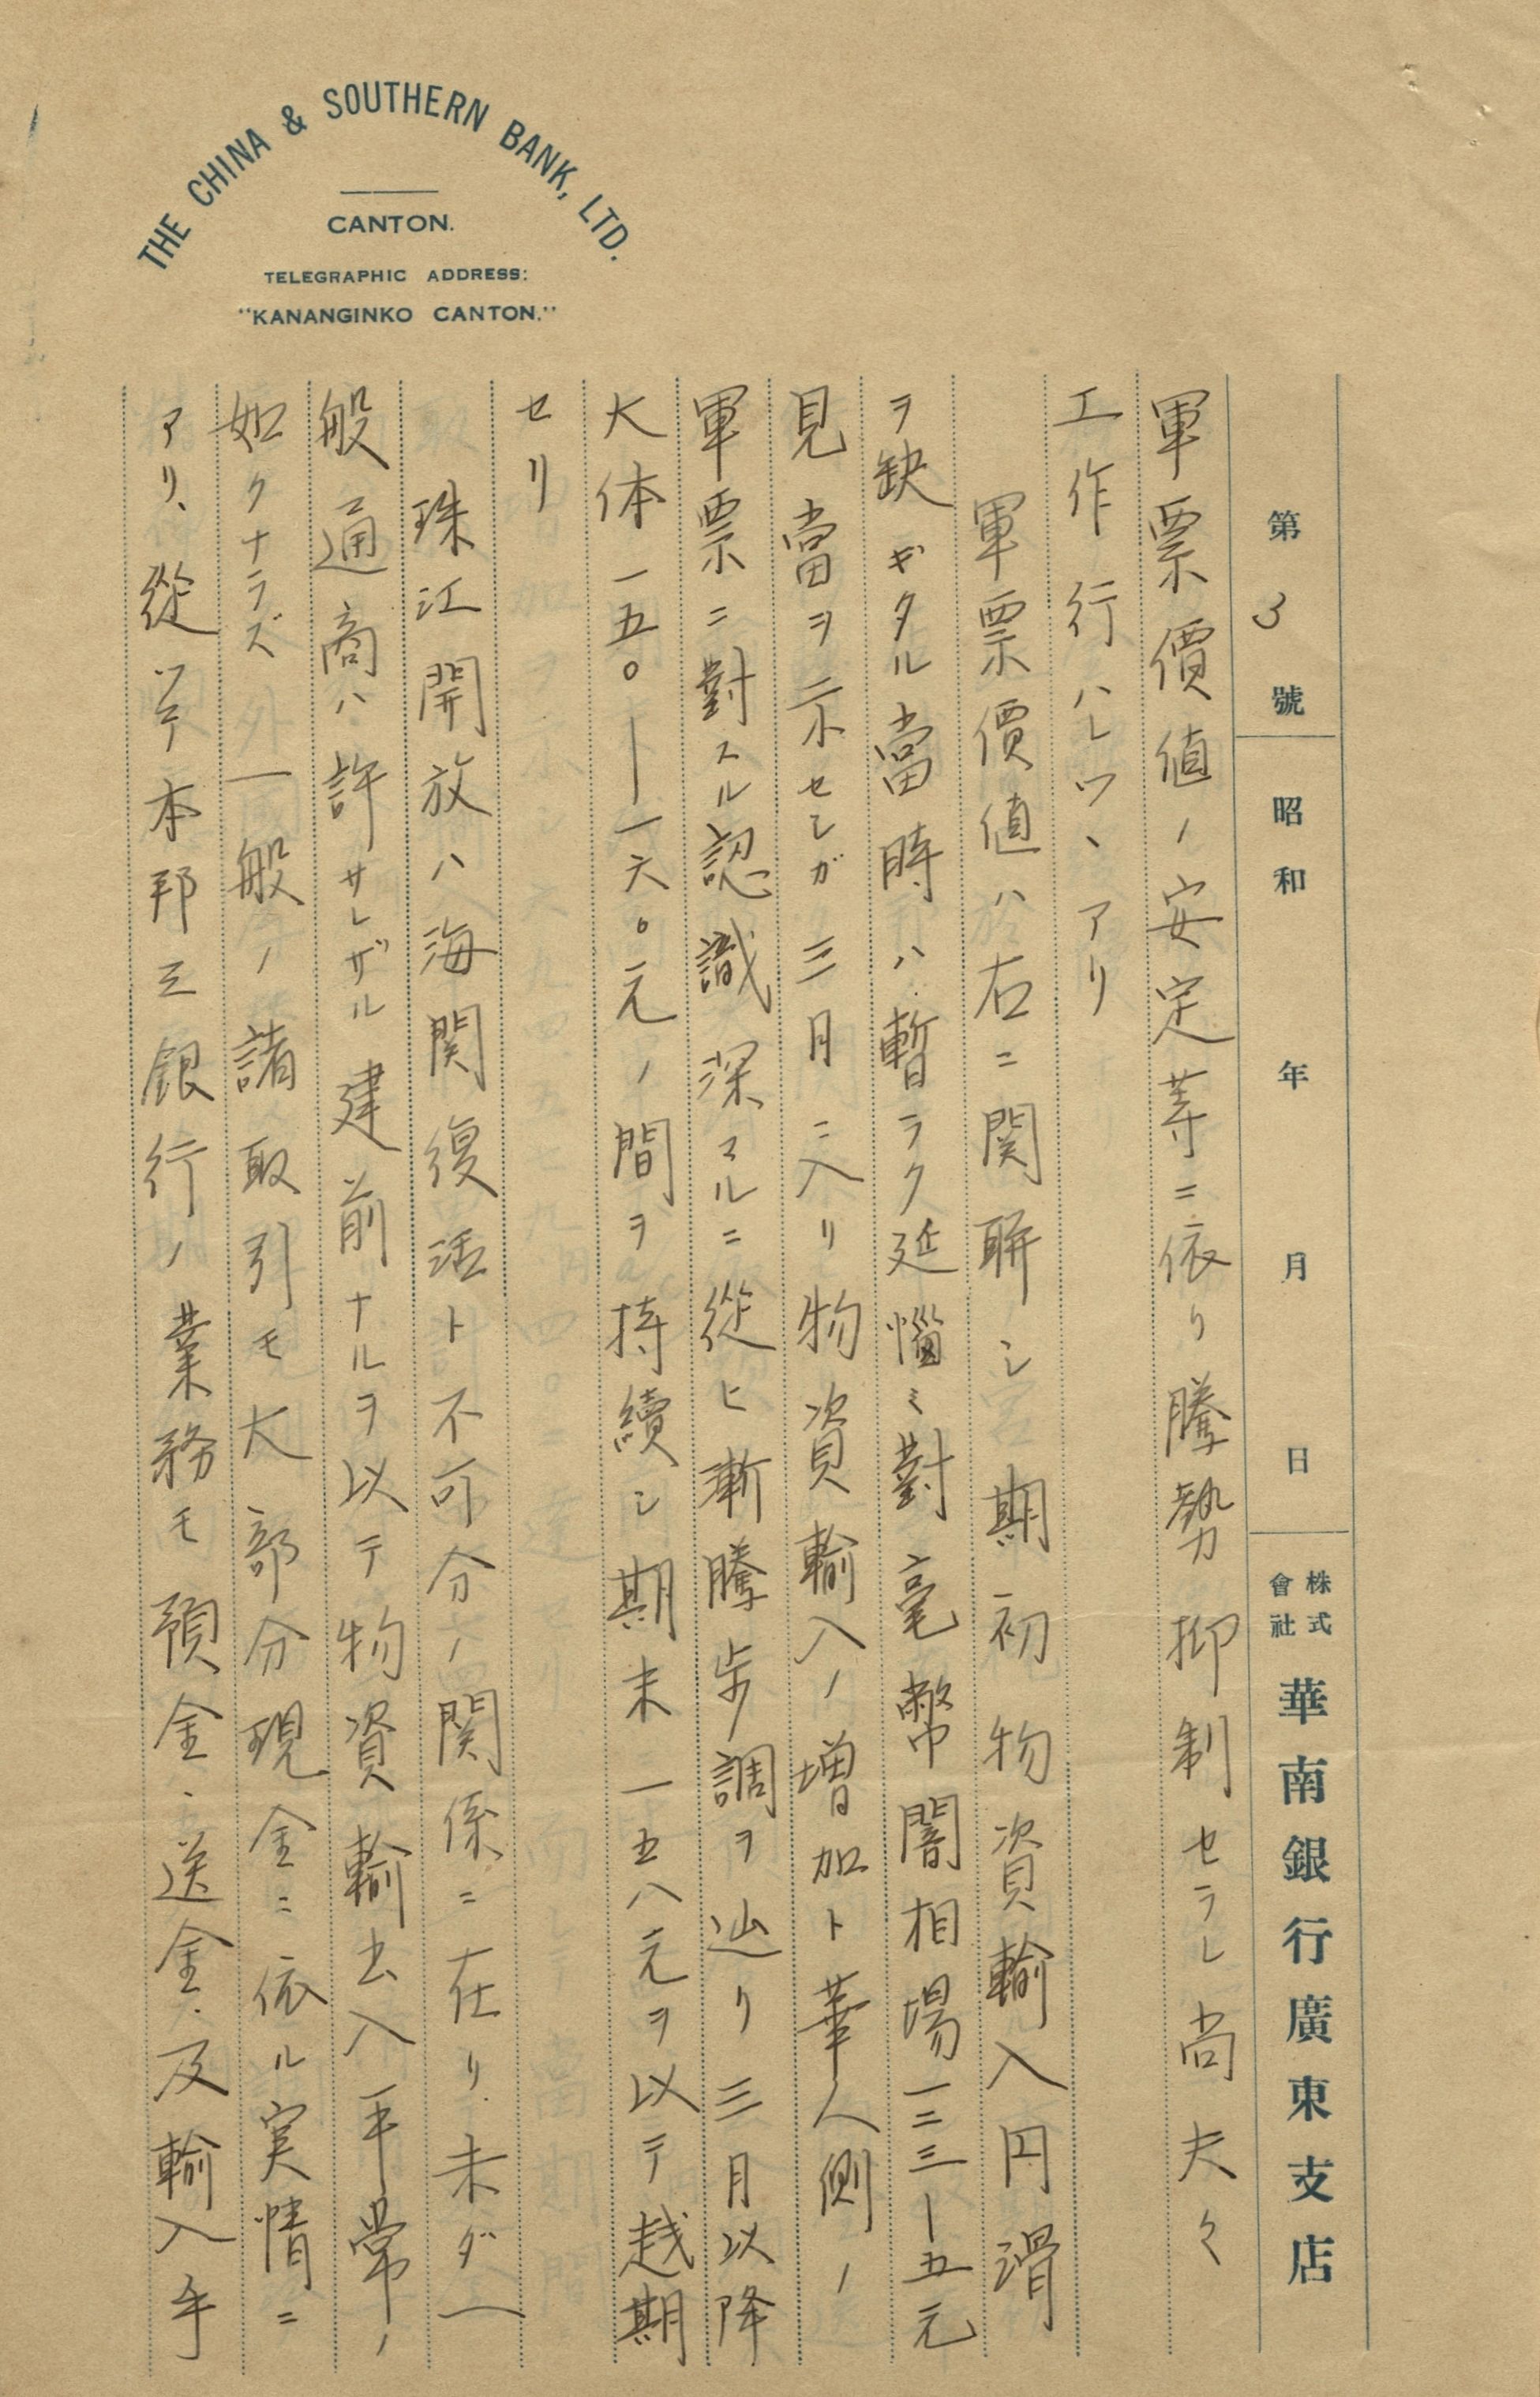 THE CHINA & SOUTHERN BANK, LTD.
CANTON.
TELEGRAPHIC ADDRESS:
"KANANGINKO CANTON."
第 3 號 昭和 年 月 日 株式會社 華南銀行廣東支店
軍票價値ノ安定等ニ依リ騰勢抑制セラレ尚夫々
工作行ハレツヽアリ
軍票價値ハ右ニ関聯シ期初物資輸入円滑
ヲ缺ギタル當時ハ暫ラク延惱ミ對毫幣闇相場一三三―五元
見當ヲ示セシガ三月ニ入リ物資輸入ノ増加ト華人側ノ
軍票ニ對スル認識深マルニ從ヒ漸騰歩調ヲ辿リ三月以降
大体一五〇―一六〇元ノ間ヲ持續シ期末一五八元ヲ以テ越期
セリ
珠江開放ハ海関復活ト不可分ノ関係ニ在リ未ダ一
般通商ハ許サレザル建前ナルヲ以テ物資輸出入平常ノ
如クナラズ一般ノ諸取引モ大部分現金ニ依ル実情ニ
アリ、從ツテ本邦三銀行ノ業務モ預金、送金、及輸入手